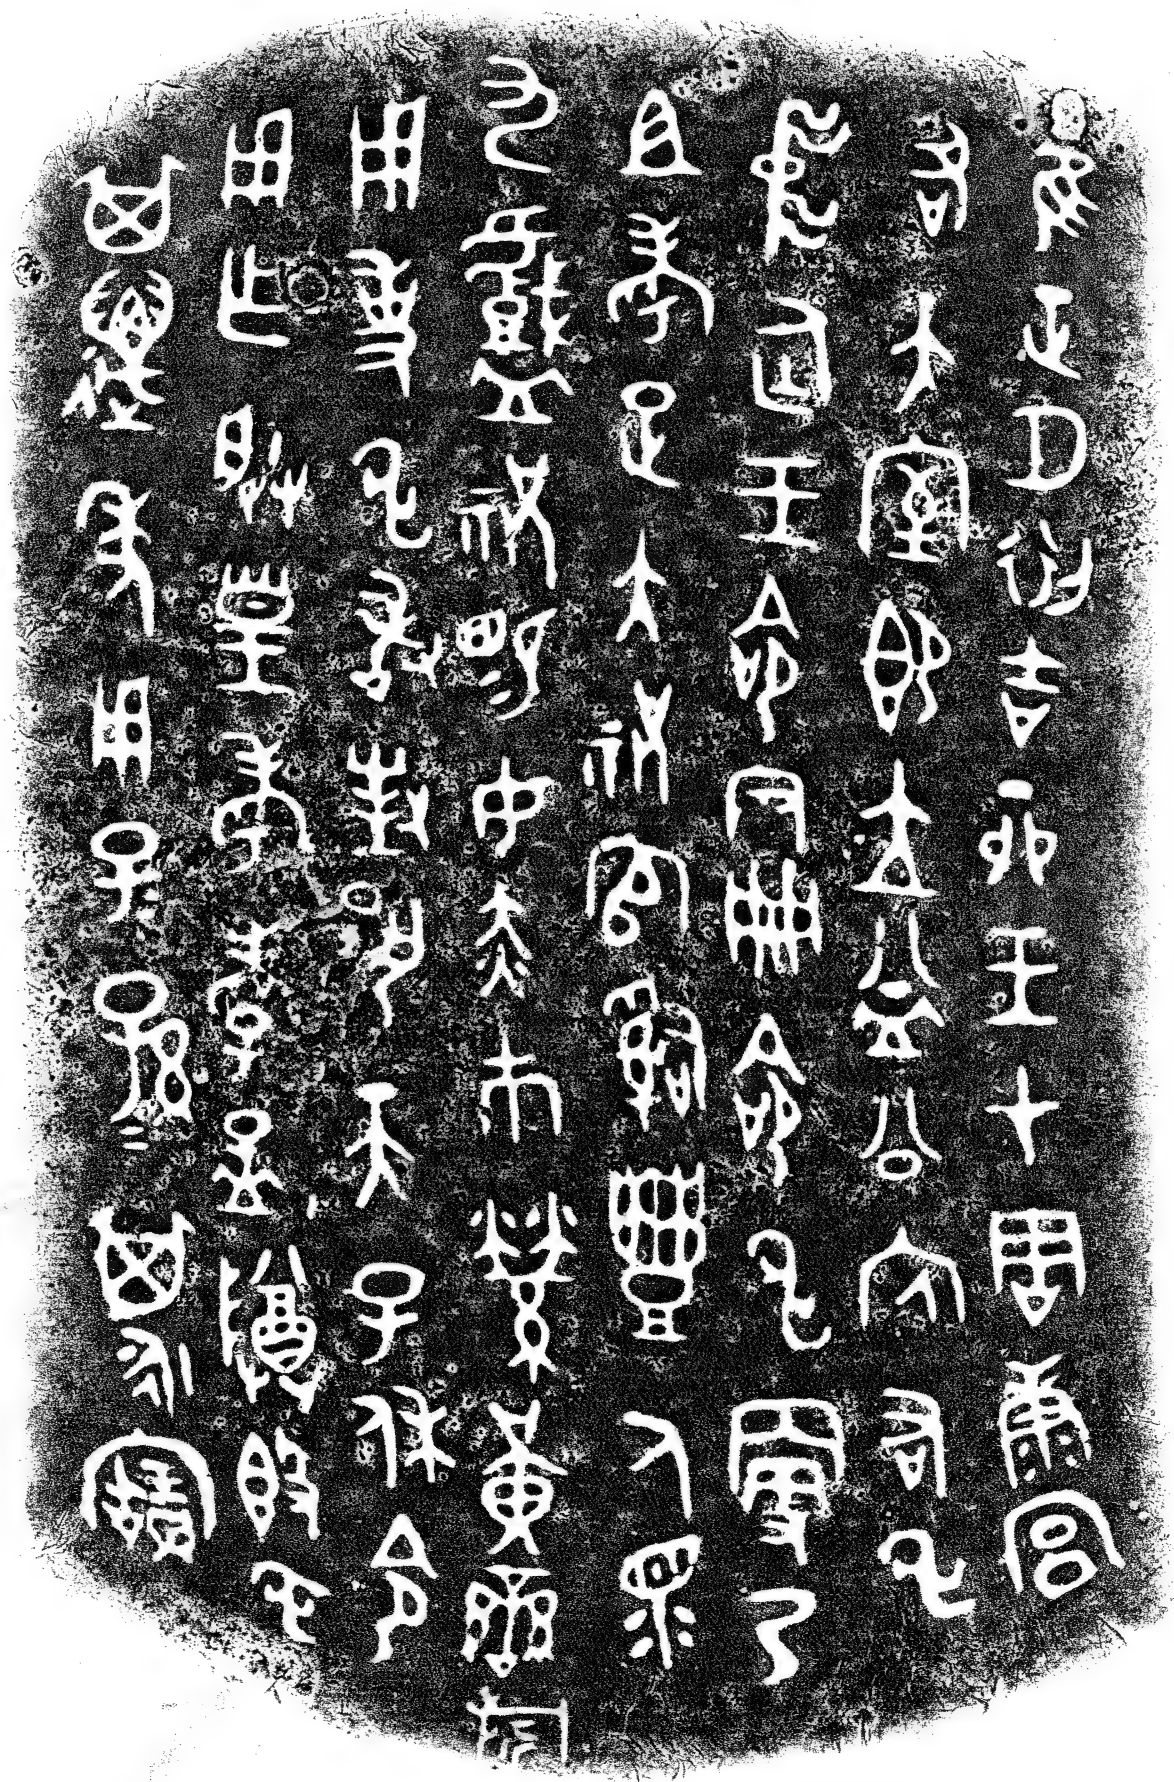 隹正月初吉丁卯王才周康宮
各大室即立益公內右申
中廷王命尹冊命申更乃
且考疋大祝官𤔲豐人眔
九戲祝易女赤巿縈黃䜌旂
用事申敢對揚天子休令
用乍朕皇考孝孟尊𣪘申
其邁年用子子孫孫其永寶